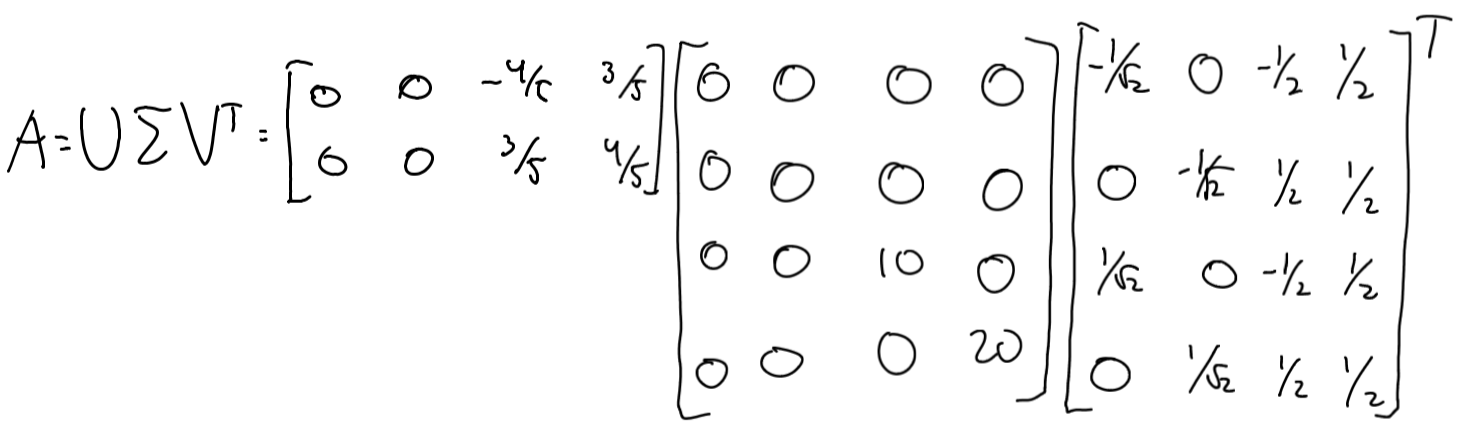 A=UΣVᵀ=[0 0 -4/5 3/5; 0 0 3/5 4/5][0 0 0 0; 0 0 0 0; 0 0 10 0; 0 0 0 20][-1/√2 0 -1/2 1/2; 0 -1/√2 1/2 1/2; 1/√2 0 -1/2 1/2; 0 1/√2 1/2 1/2]ᵀ